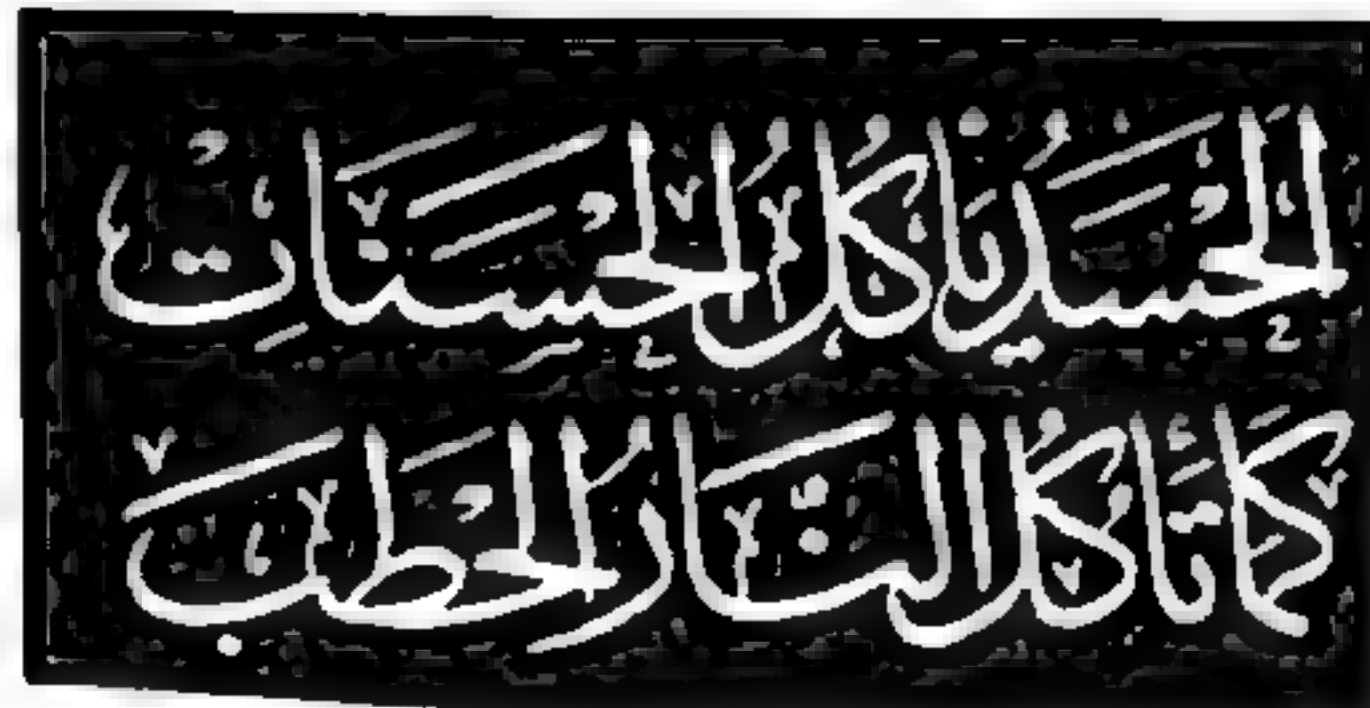 الحسد يأكل الحسنات
كما تأكل النار الحطب